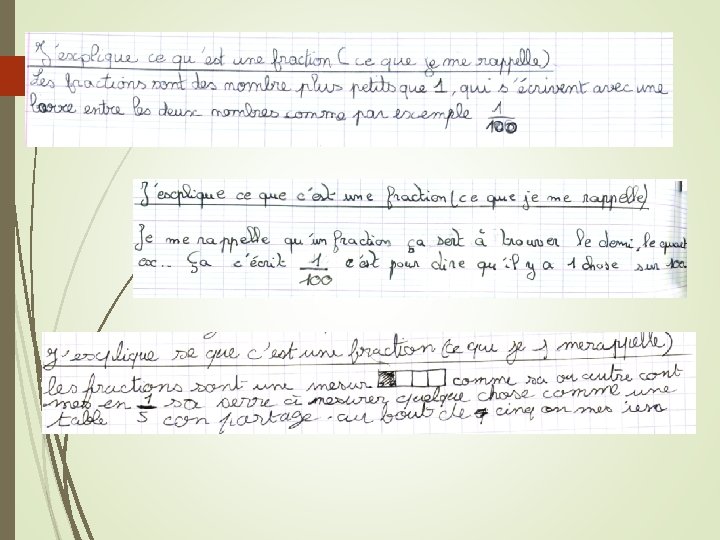 J'explique ce qu'est une fraction (ce que je me rappelle)
Les fractions sont des nombre plus petits que 1, qui s'écrivent avec une
barre entre les deux nombres comme par exemple 1/100
J'explique ce que c'est une fraction (ce que je me rappelle)
Je me rappelle qu'un fraction ça sert à trouver le demi, le quart
ex... ça c'écrit 1/100 c'est pour dire qu'il y a 1 chose sur 100
J'explique se que c'est une fraction (ce que je me rappelle)
les fractions sont une mesur comme sa ou autre cont
mes en 1/5 sa serre à mesurer quelque chose comme une
table con partage. au bout de cinq on mes